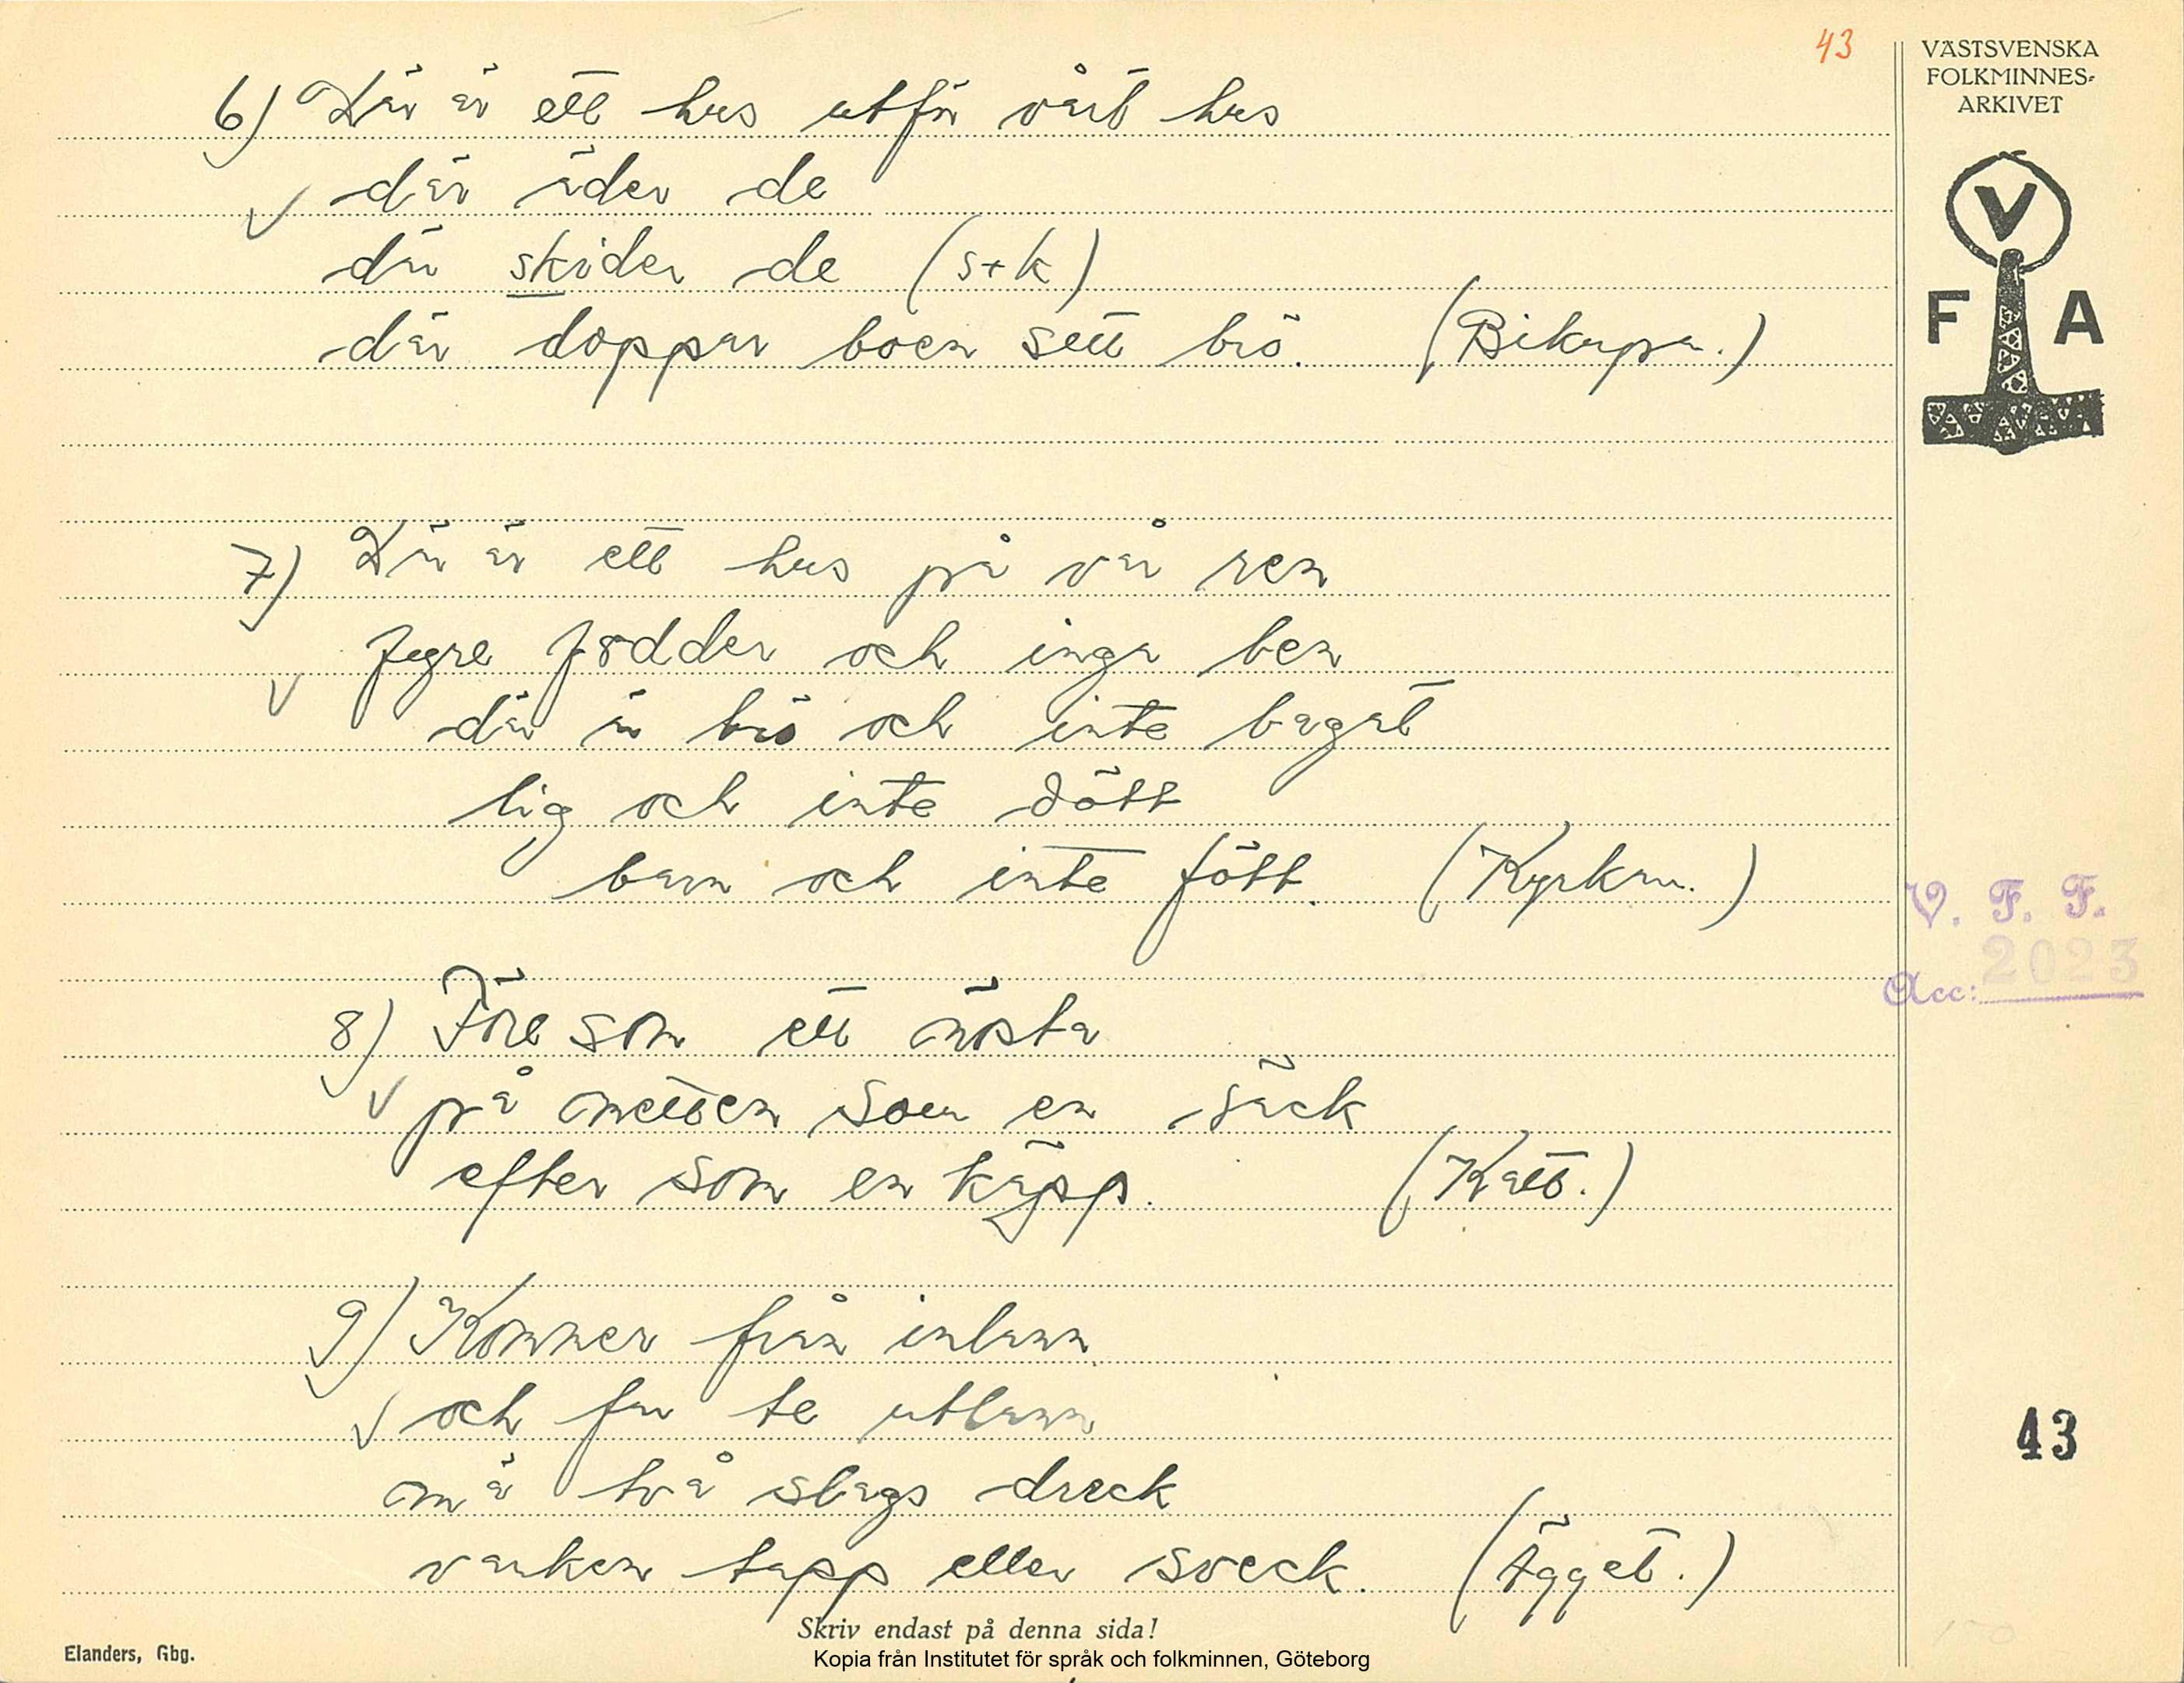 43
VÄSTSVENSKA
FOLKMINNES-
ARKIVET
V
F A
6) Där är ett hus utför vårt hus
där äder de
där skider de (s+k)
där doppar boen sett brö. (Bikupa.)
7) Där är ett hus på vår ren
fyre födder och inga ben
där är brö och inte bagat
lig och inte dött
barn och inte fött. (Kyrkan.)
8) Före som ett nösta
på metten som en säck
efter som en käpp. (Katt.)
9) Kommer från inlann
och far te utlann
mä två slags dreck
varken tapp eller sveck. (Ägget.)
V. F. F.
Acc: 2023
43
Skriv endast på denna sida!
Elanders, Gbg.
Kopia från Institutet för språk och folkminnen, Göteborg